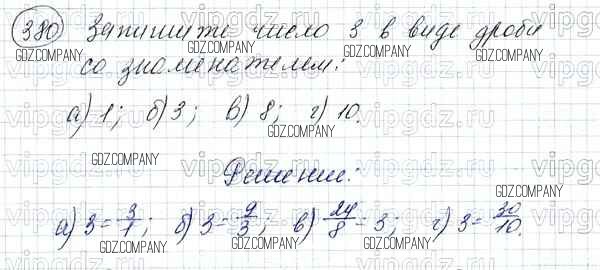 380 Запишите число 3 в виде дроби
со знаменателем:
а) 1; б) 3; в) 8; г) 10.
Решение:
а) 3 = 3/1; б) 3 = 9/3; в) 24/8 = 3; г) 3 = 30/10.
GDZ.COMPANY
vipgdz.ru